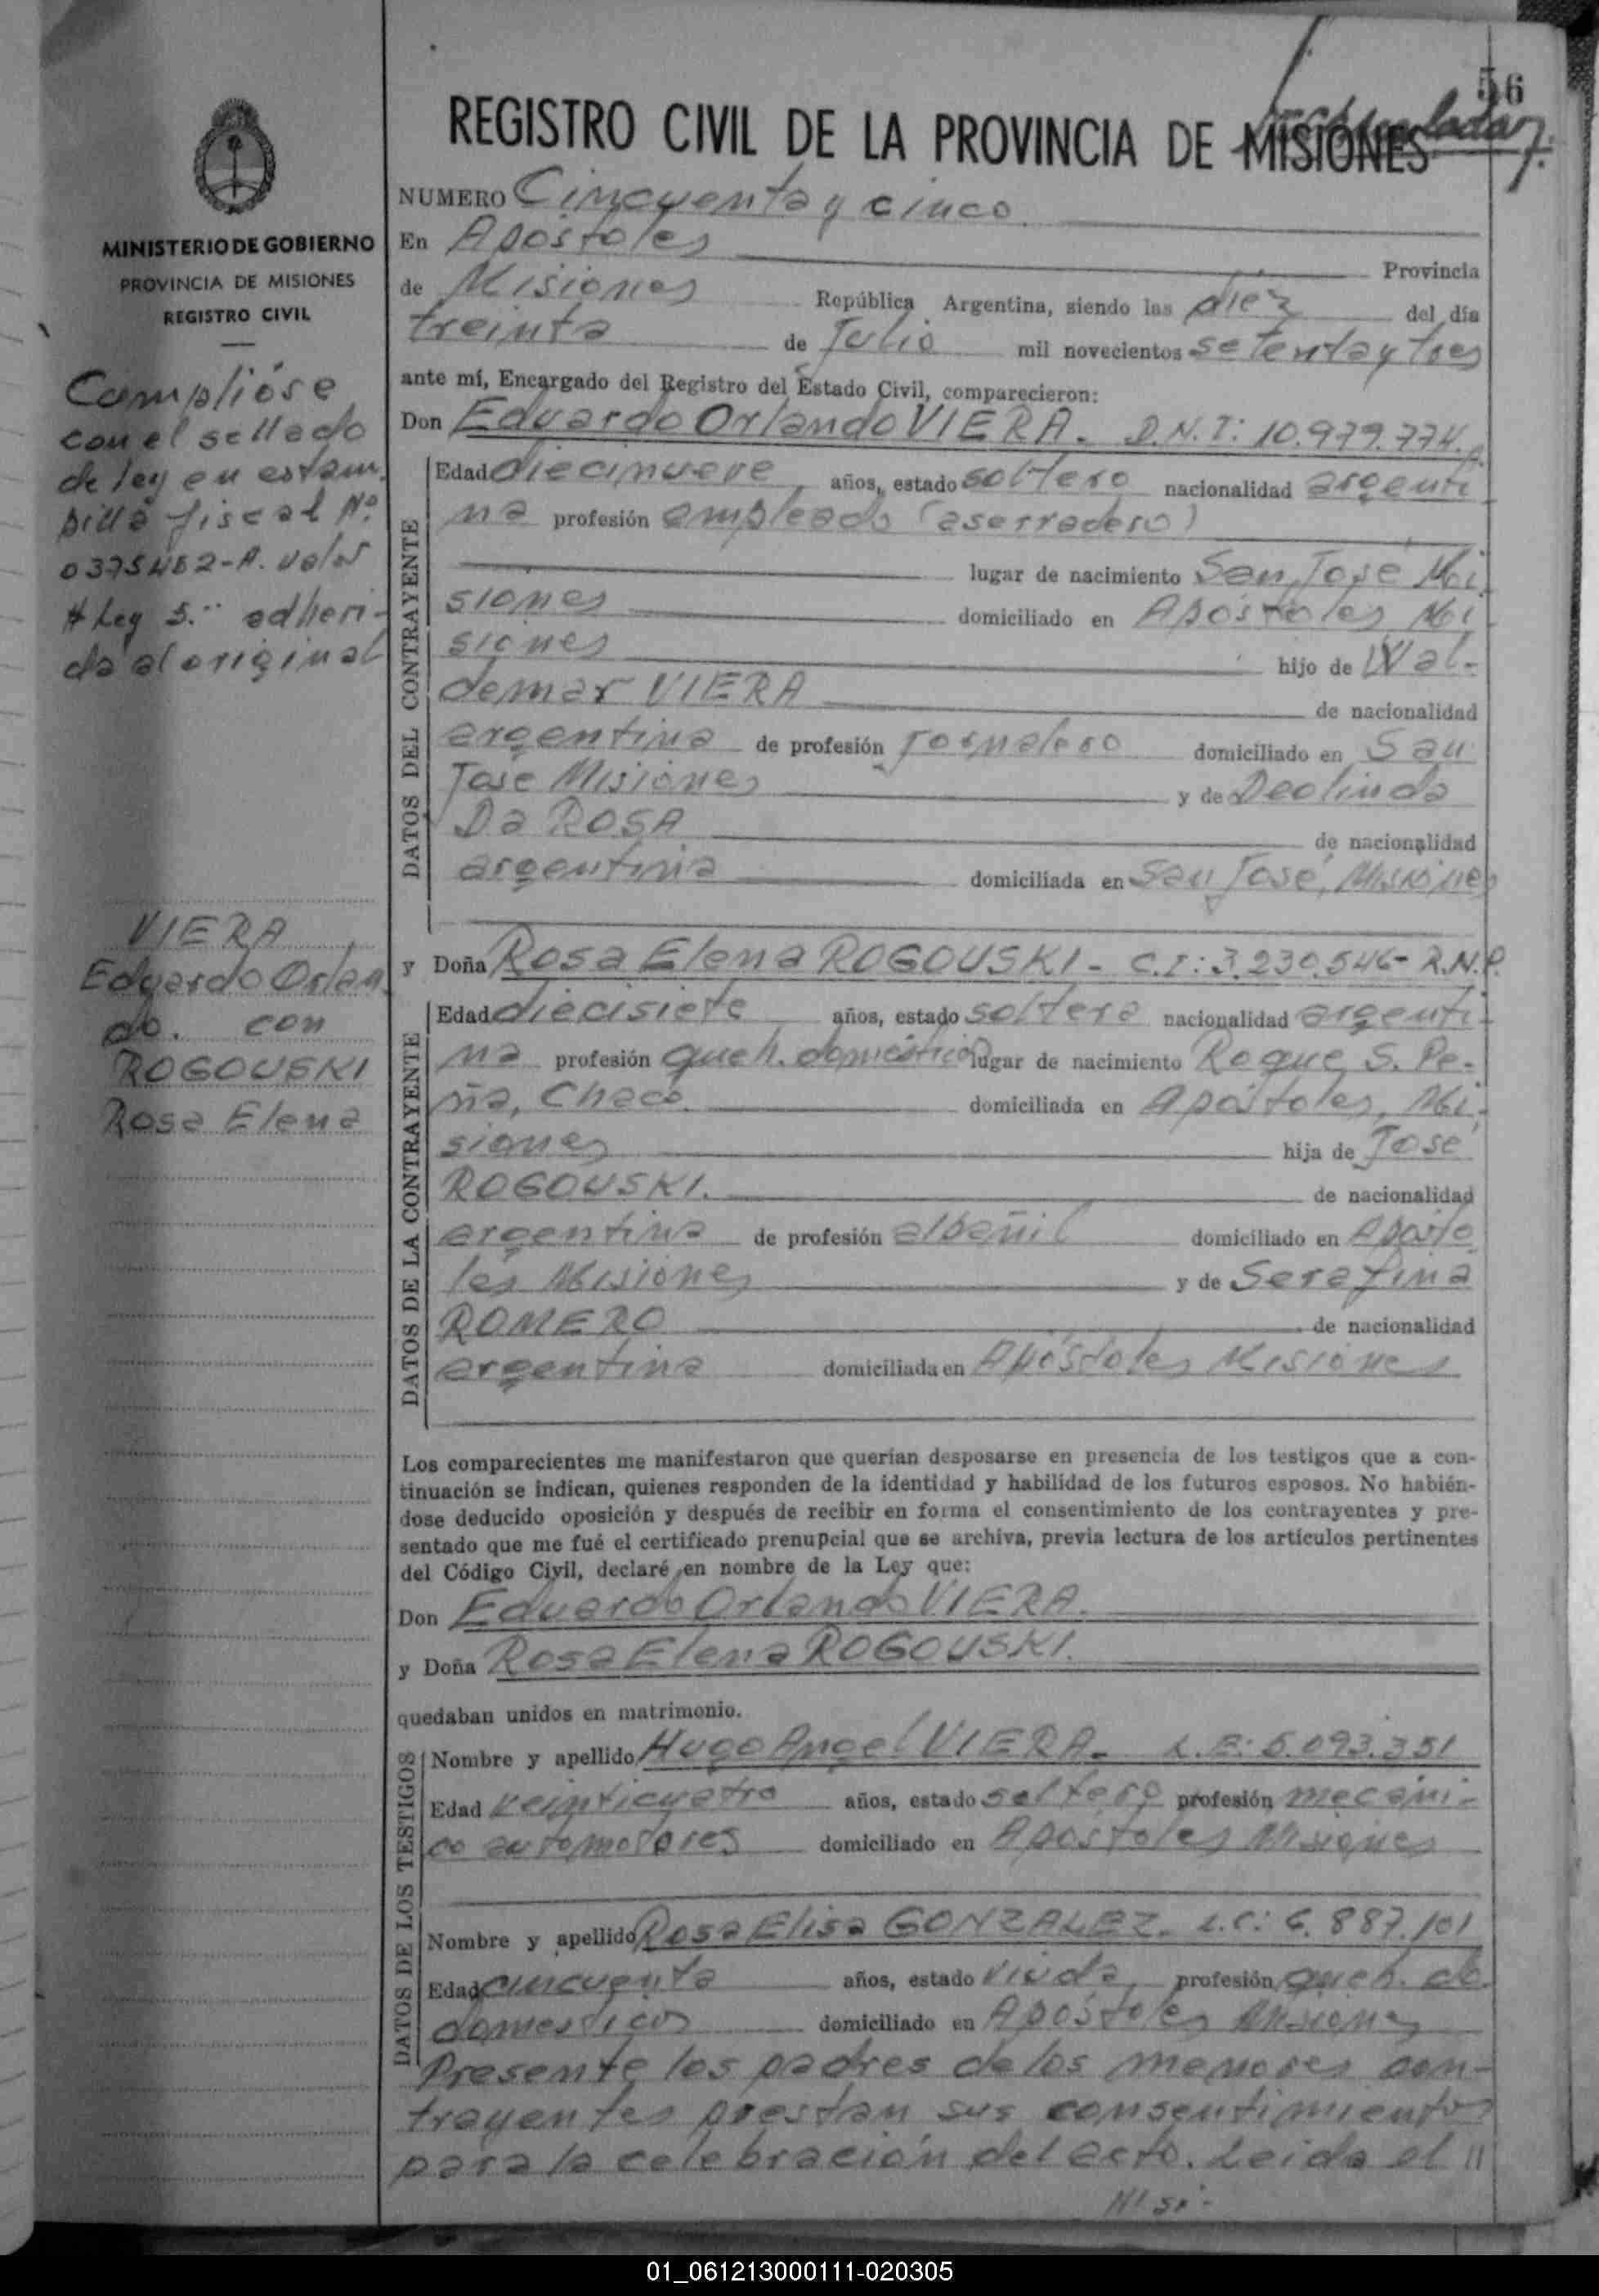 56
REGISTRO CIVIL DE LA PROVINCIA DE MISIONES
MINISTERIO DE GOBIERNO
PROVINCIA DE MISIONES
REGISTRO CIVIL
Complióse
con el sellado
de ley en estam
pilla fiscal Nº
0375452-A. valor
$ Ley 5.- adheri-
da al original
VIERA
Eduardo Orlan
do. con
ROGOUSKI
Rosa Elena
NUMERO Cincuenta y cinco
En Apóstoles Provincia
de Misiones República Argentina, siendo las diez del día
treinta de Julio mil novecientos setenta y tres
ante mí, Encargado del Registro del Estado Civil, comparecieron:
Don Eduardo Orlando VIERA. D.N.I: 10.979.774.
DATOS DEL CONTRAYENTE
Edad diecinueve años, estado soltero nacionalidad argenti
na profesión empleado (aserradero)
lugar de nacimiento San José Mi
siones domiciliado en Apóstoles Mi
siones hijo de Wal-
demar VIERA de nacionalidad
argentina de profesión Jornalero domiciliado en San
José Misiones y de Deolinda
Da ROSA de nacionalidad
argentina domiciliada en San José, Misiones
y Doña Rosa Elena ROGOUSKI - C.I: 3.230.546- R.N.P.
DATOS DE LA CONTRAYENTE
Edad diecisiete años, estado soltera nacionalidad argenti-
na profesión queh. domésticos lugar de nacimiento Roque S. Pe-
ña, Chaco. domiciliada en Apóstoles, Mi-
siones hija de José
ROGOUSKI. de nacionalidad
argentina de profesión albañil domiciliado en Aposto
les Misiones y de Serafina
ROMERO de nacionalidad
argentina domiciliada en Apóstoles Misiones
Los comparecientes me manifestaron que querían desposarse en presencia de los testigos que a con-
tinuación se indican, quienes responden de la identidad y habilidad de los futuros esposos. No habién-
dose deducido oposición y después de recibir en forma el consentimiento de los contrayentes y pre-
sentado que me fué el certificado prenupcial que se archiva, previa lectura de los artículos pertinentes
del Código Civil, declaré en nombre de la Ley que:
Don Eduardo Orlando VIERA.
y Doña Rosa Elena ROGOUSKI.
quedaban unidos en matrimonio.
DATOS DE LOS TESTIGOS
Nombre y apellido Hugo Angel VIERA. L.E: 5.093.351
Edad veinticuatro años, estado soltero profesión mecáni-
co automotores domiciliado en Apóstoles Misiones
Nombre y apellido Rosa Elisa GONZALEZ. L.C: 6.887.101
Edad cincuenta años, estado viuda, profesión queh. do
domesticos domiciliado en Apóstoles Misiones
Presente los padres de los menores con-
trayentes prestan sus consentimientos
para la celebración del acto. Leida el //
01_061213000111-020305